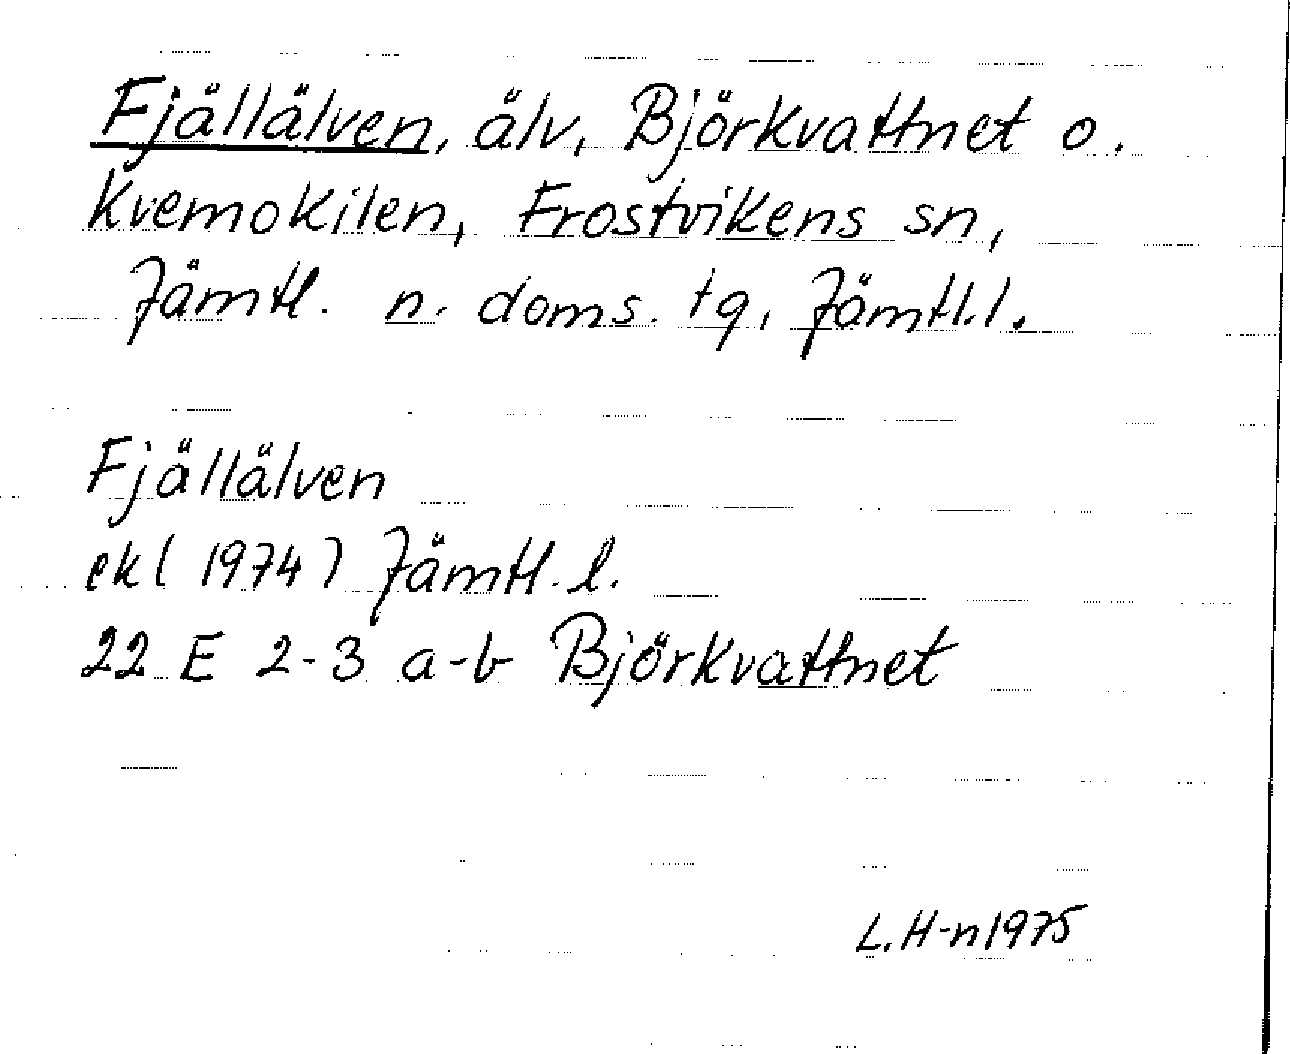 Fjällälven, älv, Björkvattnet o.
Kvemokilen, Frostvikens sn,
Jämtl. n. doms. tg, Jämtl.l.
Fjällälven
ek ( 1974 ) Jämtl. l.
22 E 2-3 a-b Björkvattnet
L. H-n 1975